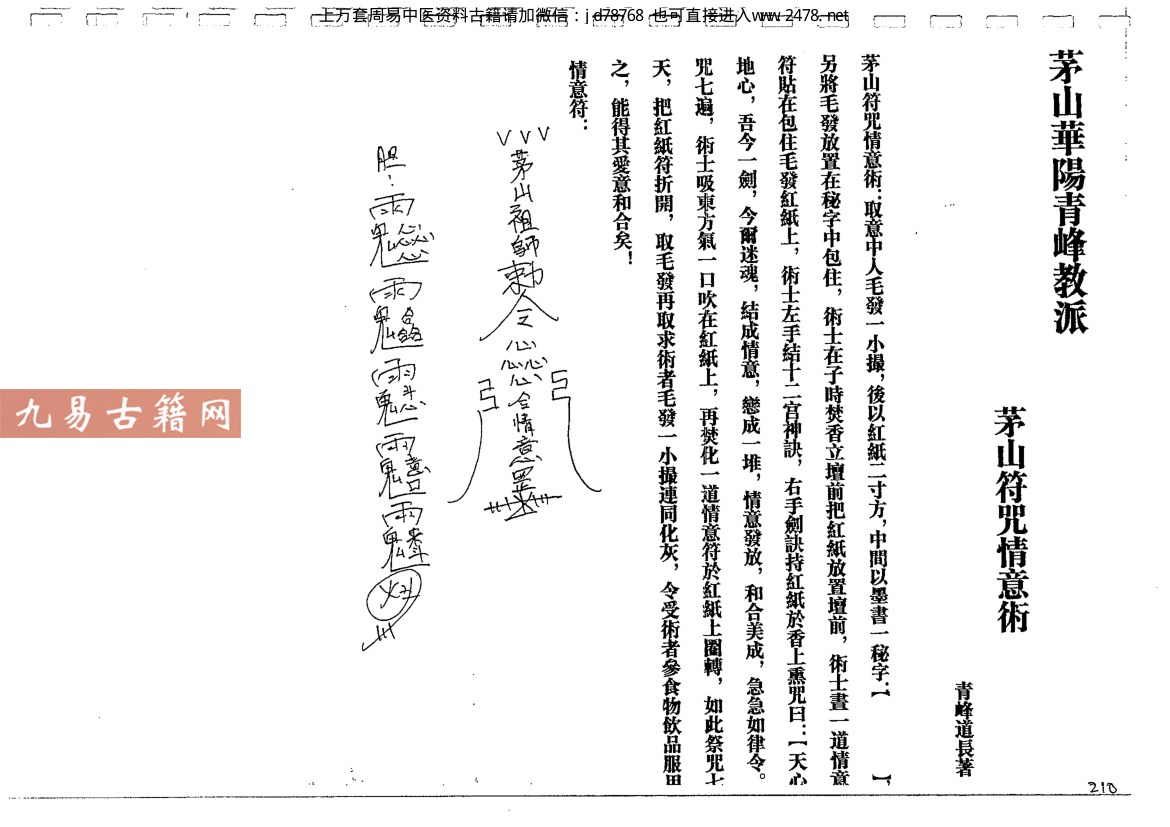 上万套周易中医资料古籍请加微信：jd78768 也可直接进入www.2478.net
茅山華陽青峰教派
茅山符咒情意術
青峰道長著
茅山符咒情意術：取意中人毛發一小撮，後以紅紙二寸方，中間以墨書一秘字：【　　】，
另將毛發放置在秘字中包住，術士在子時焚香立壇前把紅紙放置壇前，術士晝一道情意
符貼在包住毛發紅紙上，術士左手結十二宫神訣，右手劍訣持紅紙於香上熏咒曰：【天心
地心，吾今一劍，今爾迷魂，結成情意，戀成一堆，情意發放，和合美成，急急如律令。
咒七遍，術士吸東方氣一口吹在紅紙上，再焚化一道情意符於紅紙上圈轉，如此祭咒七
天，把紅紙符折開，取毛發再取求術者毛發一小撮連同化灰，令受術者參食物飲品服用
之，能得其愛意和合矣！
情意符：
茅山祖師勅令
心心心心合情意
胆：
九易古籍网
210